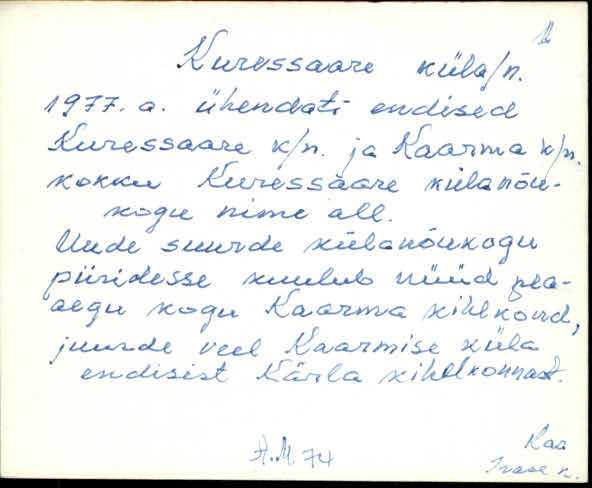 Kuressaare küla/n.
1977. a. ühendati endised
Kuressaare k/n. ja Kaarma k/n.
kokku Kuressaare külanõu-
kogu nime all.
Uude suurde külanõukogu
piiridesse kuulub nüüd pea-
aegu kogu Kaarma kihlkond,
juurde veel Kaarmise küla
endisist Kärla kihelkonnast.
A.M 74
Kaa